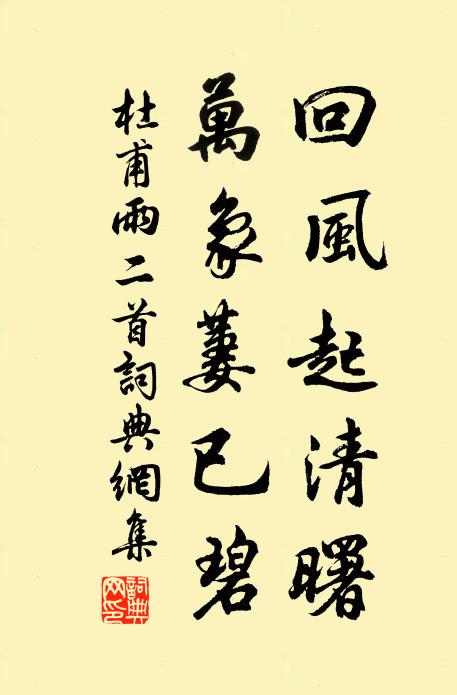 回風起清曙
萬象萋已碧
杜甫雨二首詞典網集
詞典
网印